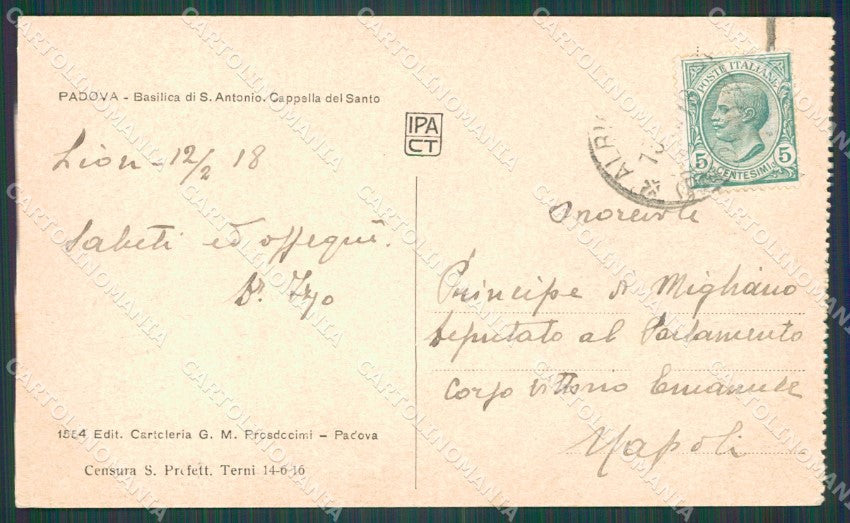 PADOVA - Basilica di S. Antonio. Cappella del Santo
IPA
CT
Lion - 12/2 18
Saluti ed ossequi.
POSTE ITALIANE
5 CENTESIMI 5
Onorevole
Principe di Migliano
Deputato al Parlamento
Corso Vittorio Emanuele
Napoli
1554 Edit. Cartoleria G. M. Prosdocimi - Padova
Censura S. Prefett. Terni 14-6-16
CARTOLINOMANIA